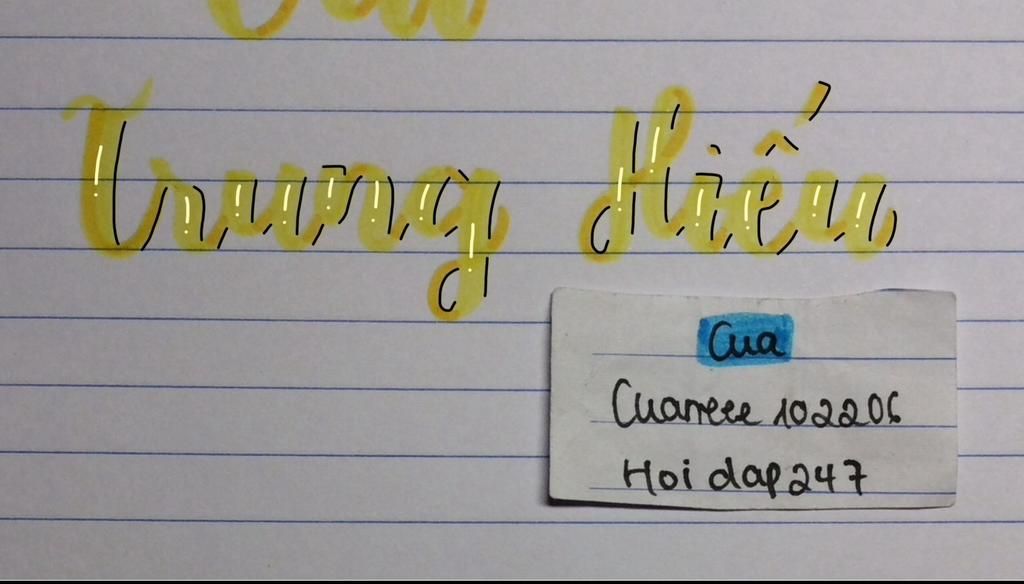 Trung Hiếu
Cua
Cuarreee 102206
Hoi dap 247